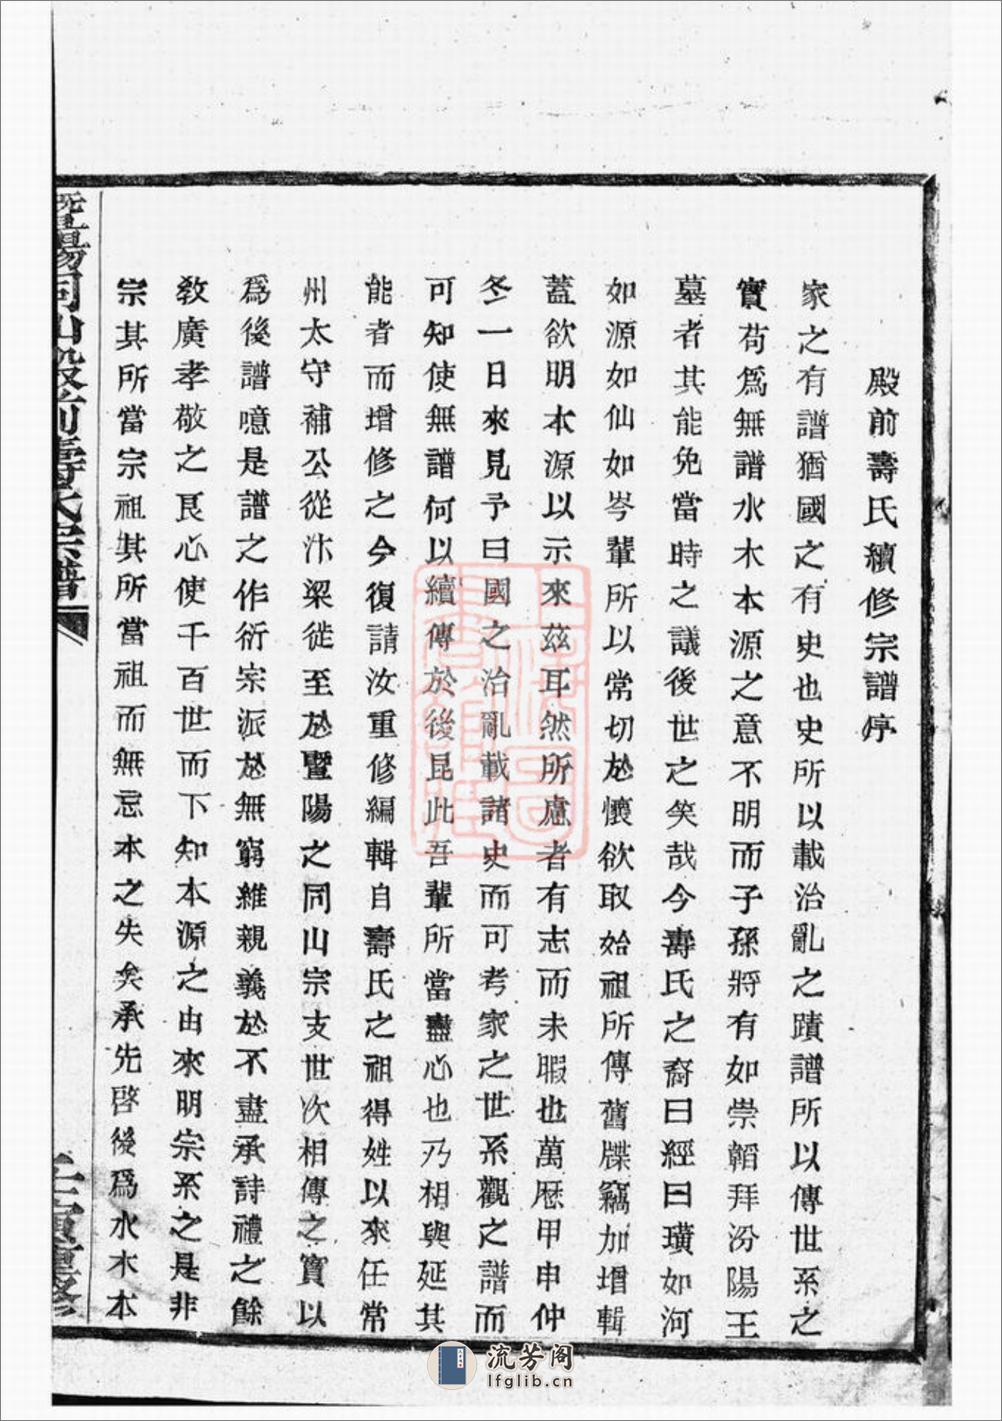 殿前壽氏續修宗譜序
家之有譜猶國之有史也史所以載治亂之蹟譜所以傳世系之
實苟爲無譜水木本源之意不明而子孫將有如崇韜拜汾陽王
墓者其能免當時之議後世之笑哉今壽氏之裔曰經曰璜如河
如源如仙如岑輩所以常切於懷欲取始祖所傳舊牒竊加增輯
蓋欲明本源以示來茲耳然所慮者有志而未暇也萬歷甲申仲
冬一日來見予曰國之治亂載諸史而可考家之世系觀之譜而
可知使無譜何以續傳於後昆此吾輩所當盡心也乃相與延其
能者而增修之今復請汝重修編輯自壽氏之祖得姓以來任常
州太守補公從汴梁徙至於暨陽之同山宗支世次相傳之實以
爲後譜噫是譜之作衍宗派於無窮維親義於不盡承詩禮之餘
敎廣孝敬之良心使千百世而下知本源之由來明宗系之是非
宗其所當宗祖其所當祖而無忘本之失矣承先啓後爲水木本
暨陽同山殿前壽氏宗譜
壬寅重修
流芳阁
lfglib.cn